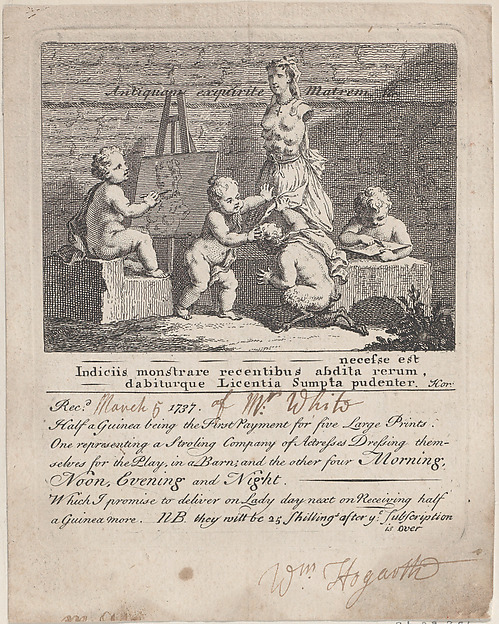 Antiquam exquirite Matrem.
necesse est
Indiciis monstrare recentibus abdita rerum,
dabiturque Licentia Sumpta pudenter. Hor.
Rec.d March 5 1737. of Mr. White
Half a Guinea being the First Payment for five Large Prints:
One representing a Stroling Company of Actresses Dressing them-
selves for the Play, in a Barn; and the other four Morning,
Noon, Evening and Night.
Which I promise to deliver on Lady day next on Receiving half
a Guinea more. N.B. they will be 25 Shillings after ye. Subscription
is over
Wm. Hogarth